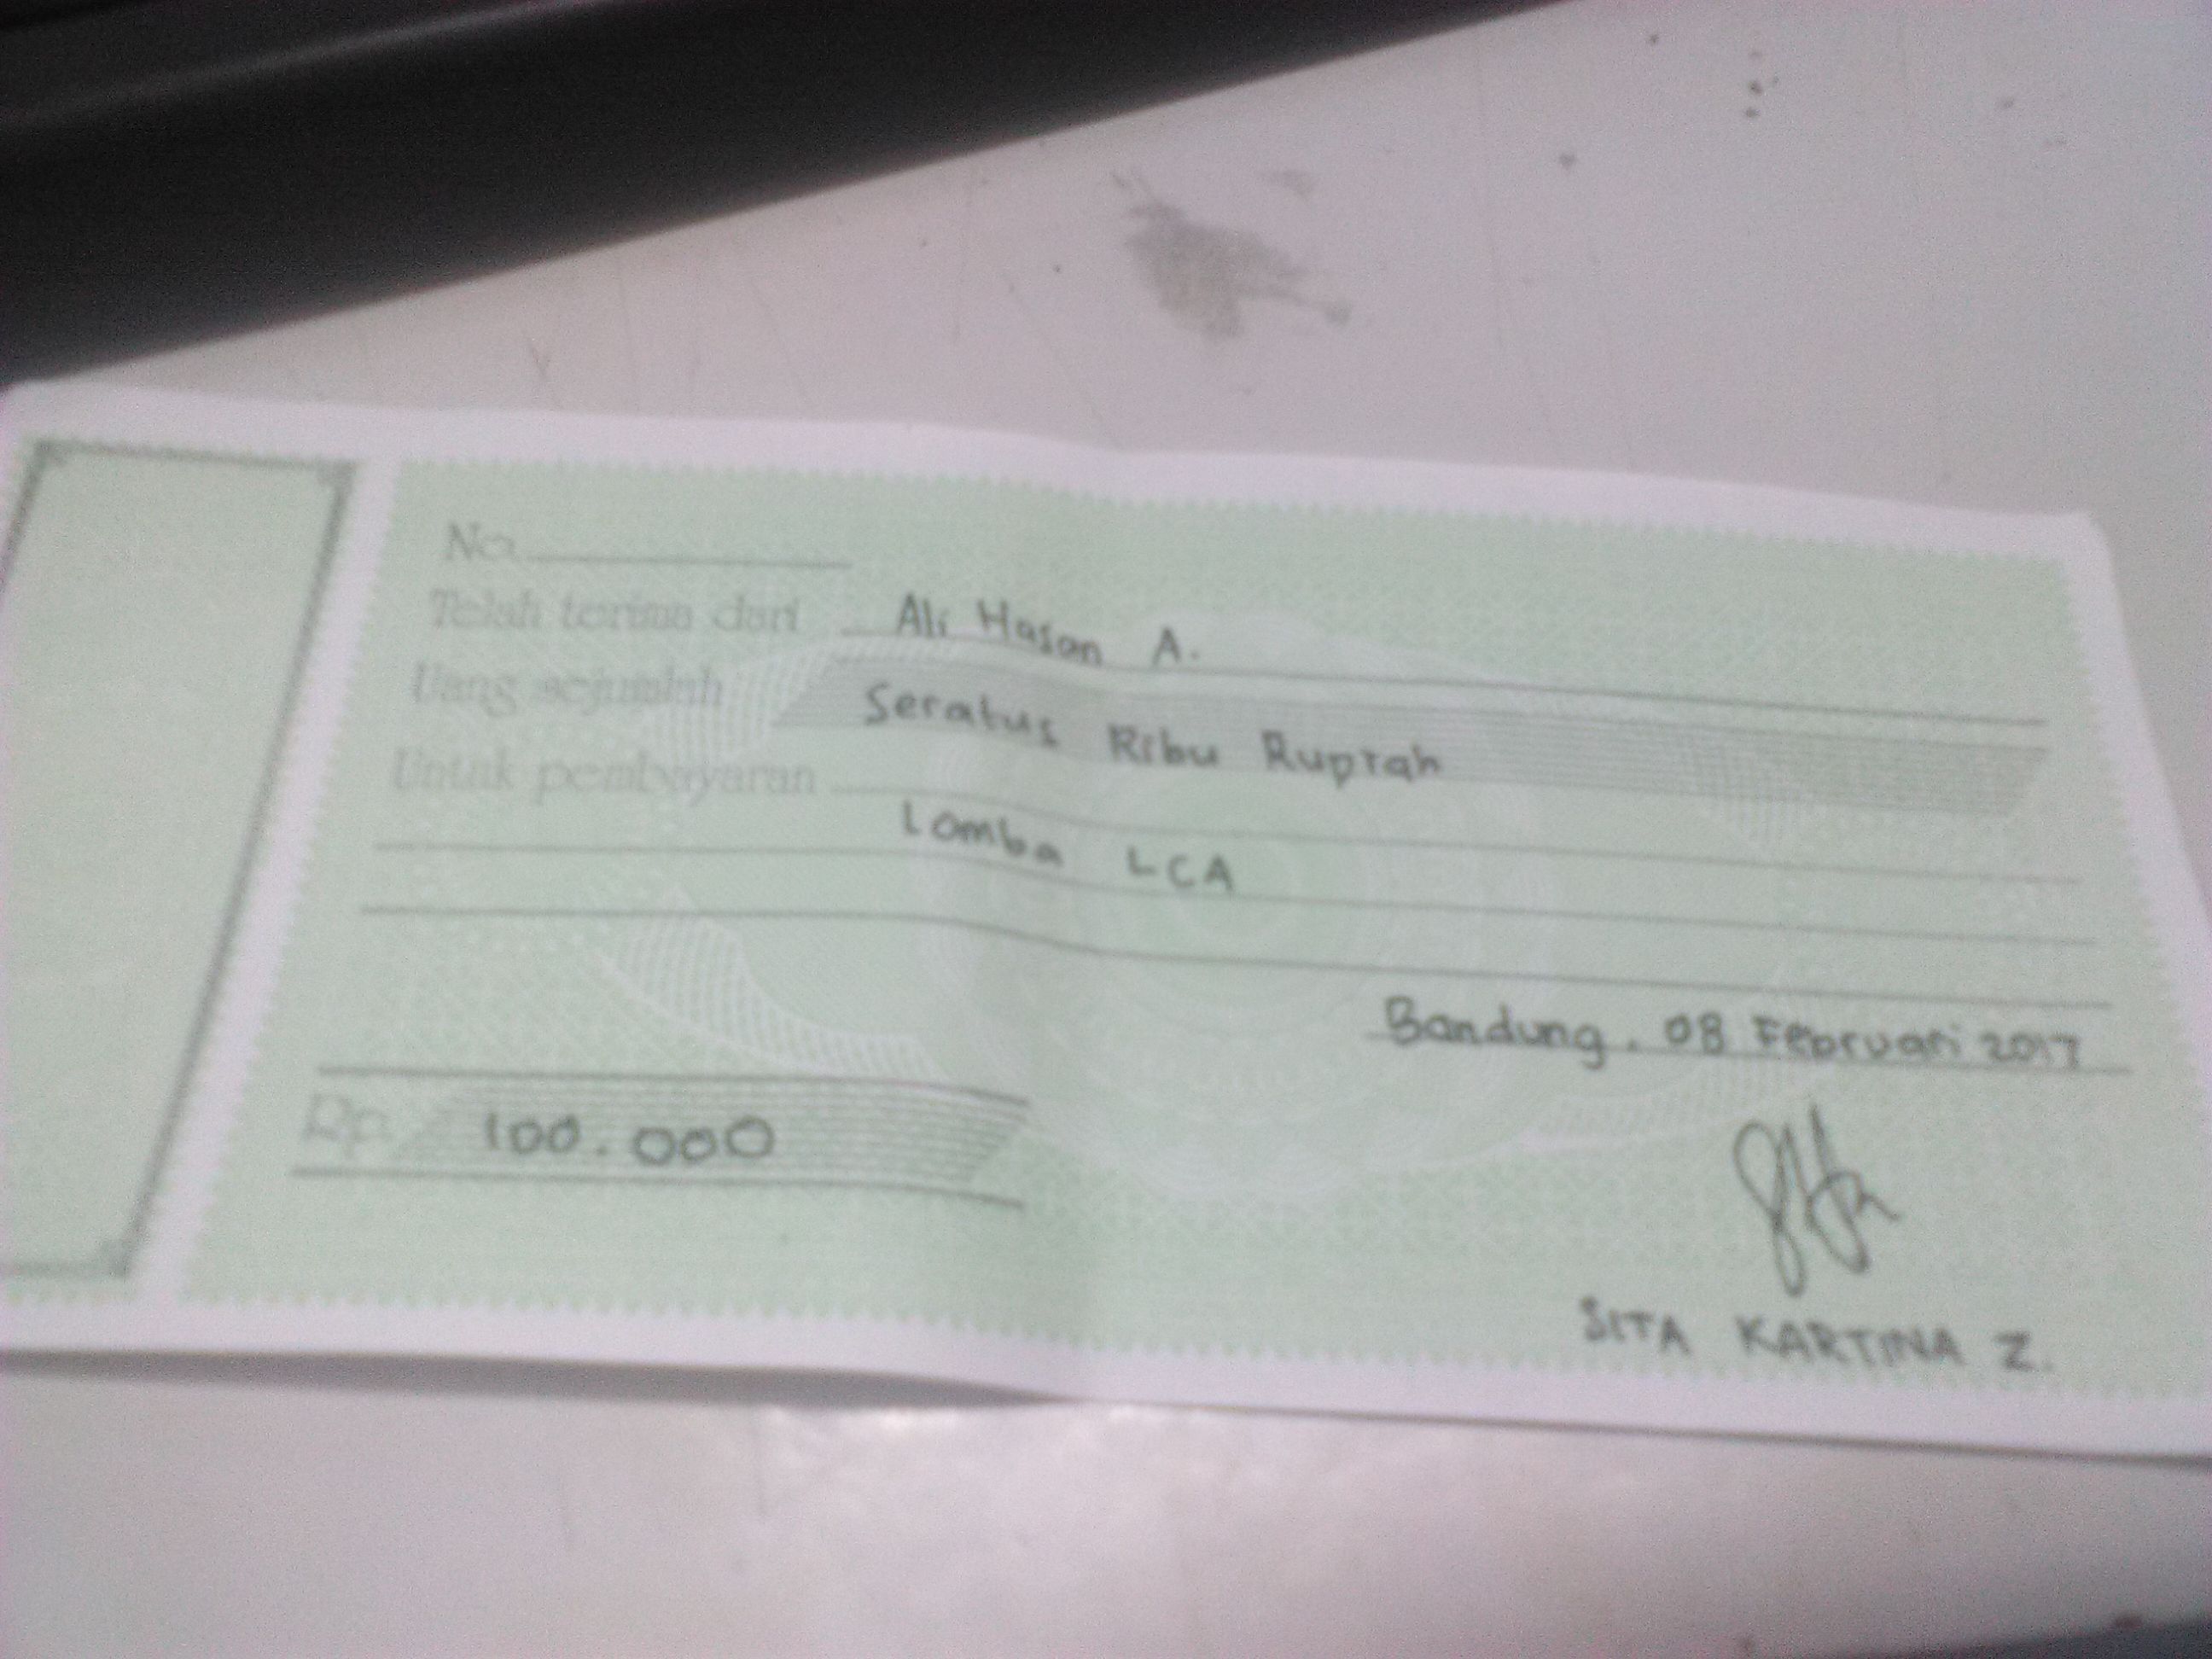 No.
Telah terima dari Ali Hasan A.
Uang sejumlah Seratus Ribu Rupiah
Untuk pembayaran
Lomba LCA
Bandung, 08 Februari 2017
Rp. 100.000
SITA KARTINA Z.